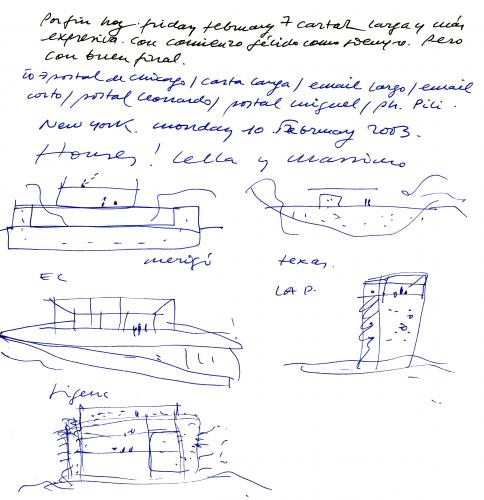 Por fin hoy. friday february 7 carta larga y más
expresiva. con comienzo gélido como siempre. Pero
con buen final.
to 7 postal de chicago / carta larga / email largo / email
corto / postal Leonardo / postal miguel / ph. Pili.
New York. monday 10. February 2003.
Houses! Lella y Massimo
merigó
texas.
EC
LAP.